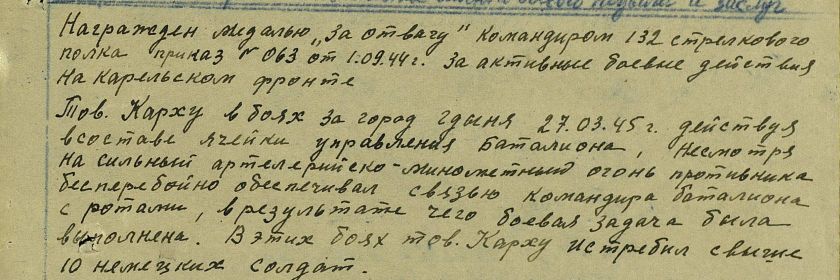 боевого подвига и заслуг
Награжден медалью „За отвагу" командиром 132 стрелкового
полка приказ № 063 от 1.09.44 г. за активные боевые действия
на карельском фронте
Тов. Карху в боях за город Гдыня 27.03.45 г. действуя
в составе ячейки управления баталиона, несмотря
на сильный артелерийско-минометный огонь противника
бесперебойно обеспечивал связью командира баталиона
с ротами, в результате чего боевая задача была
выполнена. В этих боях тов. Карху истребил свыше
10 немецких солдат.